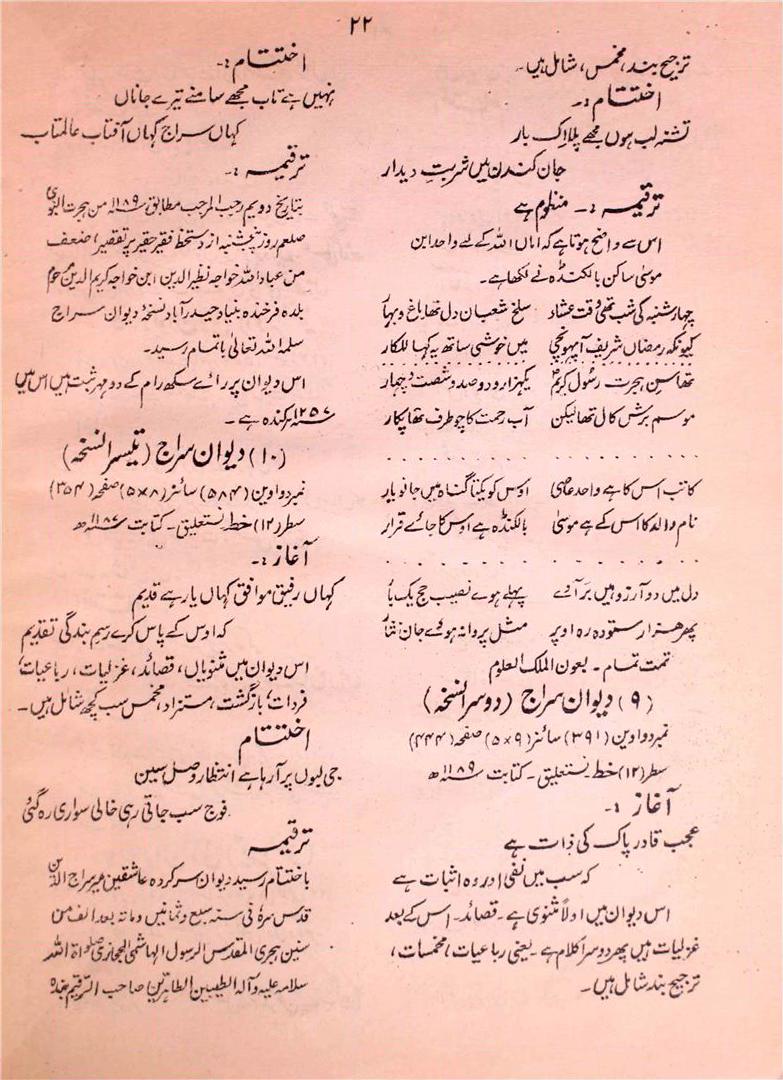 ۲۲
ترجیح بند، مخمس، شامل ہیں۔
اختتام :۔
تشنہ لب ہوں مجھے پلا اک بار
جان کندن میں شربتِ دیدار
ترقیمہ :۔ منظوم ہے
اس سے واضح ہوتا ہے کہ اماں اللہ کے لیے واحد ابن
موسیٰ ساکن بالکنڈہ نے لکھا ہے۔
چہار شنبہ کی شب تھی وقت عشاء سلخ شعبان دل تھا باغ و بہار
کیونکہ رمضاں شریف آ پہونچی میں خوشی ساتھ یہ کہا للکار
تھا سن ہجرت رسُول کریمؐ یکہزار و دو صد و شصت و چہار
موسم برش کال تھا لیکن آب رحمت کا چو طرف تھا پکار
. . . . . . . . . . . . . .
کاتب اس کا ہے واحد عاصی اوس کو یکتا گناہ میں جانو یار
نام والد کا اس کے ہے موسیٰ بالکنڈہ ہے اوس کا جائے قرار
. . . . . . . . . . . . . .
دل میں دو آرزو ہیں بَر آوے پہلے ہوے نصیب حج یک بار
پھر ہزار ستودہ رہ اوپر مثل پروانہ ہووے جان نثار
تمت تمام۔ بعون الملک العلوم
(۹) دیوان سراج (دوسرا نسخہ)
نمبر دواوین (۳۹۱) سائز (۹×۵) صفحہ (۴۴۴)
سطر (۱۲) خط نستعلیق۔ کتابت ۱۱۸۹ھ
آغاز :۔
عجب قادر پاک کی ذات ہے
کہ سب میں نفی اور وہ اثبات ہے
اس دیوان میں اولاً مثنوی ہے۔ قصائد۔ اس کے بعد
غزلیات ہیں پھر دوسرا کلام ہے۔ یعنی رباعیات، مخمسات،
ترجیح بند شامل ہیں۔
اختتام :۔
نہیں ہے تاب مجھے سامنے تیرے جاناں
کہاں سراج کہاں آفتاب عالمتاب
ترقیمہ :۔
بتاریخ دویم رجب المرجب مطابق ۱۱۸۹ سنہ من ہجرت النبوی
صلعم روز پنچشنبہ از دستخط فقیر حقیر پر تقصیر اضعف
من عباد اللہ خواجہ نظیر الدین ابن خواجہ کریم الدین مرحوم
بلدہ فرخندہ بنیاد حیدرآباد نسخۂ دیوان سراج
سلمہ اللہ تعالیٰ باتمام رسید۔
اس دیوان پر رائے سکھ رام کے دو مہر ثبت ہیں اس میں
۱۲۵۷ سنہ کندہ ہے۔
(۱۰) دیوان سراج (تیسرا نسخہ)
نمبر دواوین (۵۸۴) سائز (۸×۵) صفحہ (۳۵۴)
سطر (۱۲) خط نستعلیق۔ کتابت ۱۱۸۷ھ
آغاز :۔
کہاں رفیق موافق کہاں یار ہے قدیم
کہ اوس کے پاس کرے رسم بندگی تقدیم
اس دیوان میں مثنویاں، قصائد، غزلیات، رباعیات،
فردات، بازگشت، مستزاد، مخمس سب کچھ شامل ہیں۔
اختتام
جی لبوں پر آرہا ہے انتظار وصل سین
فوج سب جاتی رہی خالی سواری رہ گئی
ترقیمہ
باختتام رسید دیوان سر کردہ عاشقین میر سراج الدین
قدس سرہٗ فی سنہ سبع و ثمانین و مائہ بعد الف من
سنین ہجری المقدس الرسول الہاشمی الحجازی صلواۃ اللہ
سلامہ علیہ وآلہ الطیبین الطاہرین صاحب الترقیم بندہ